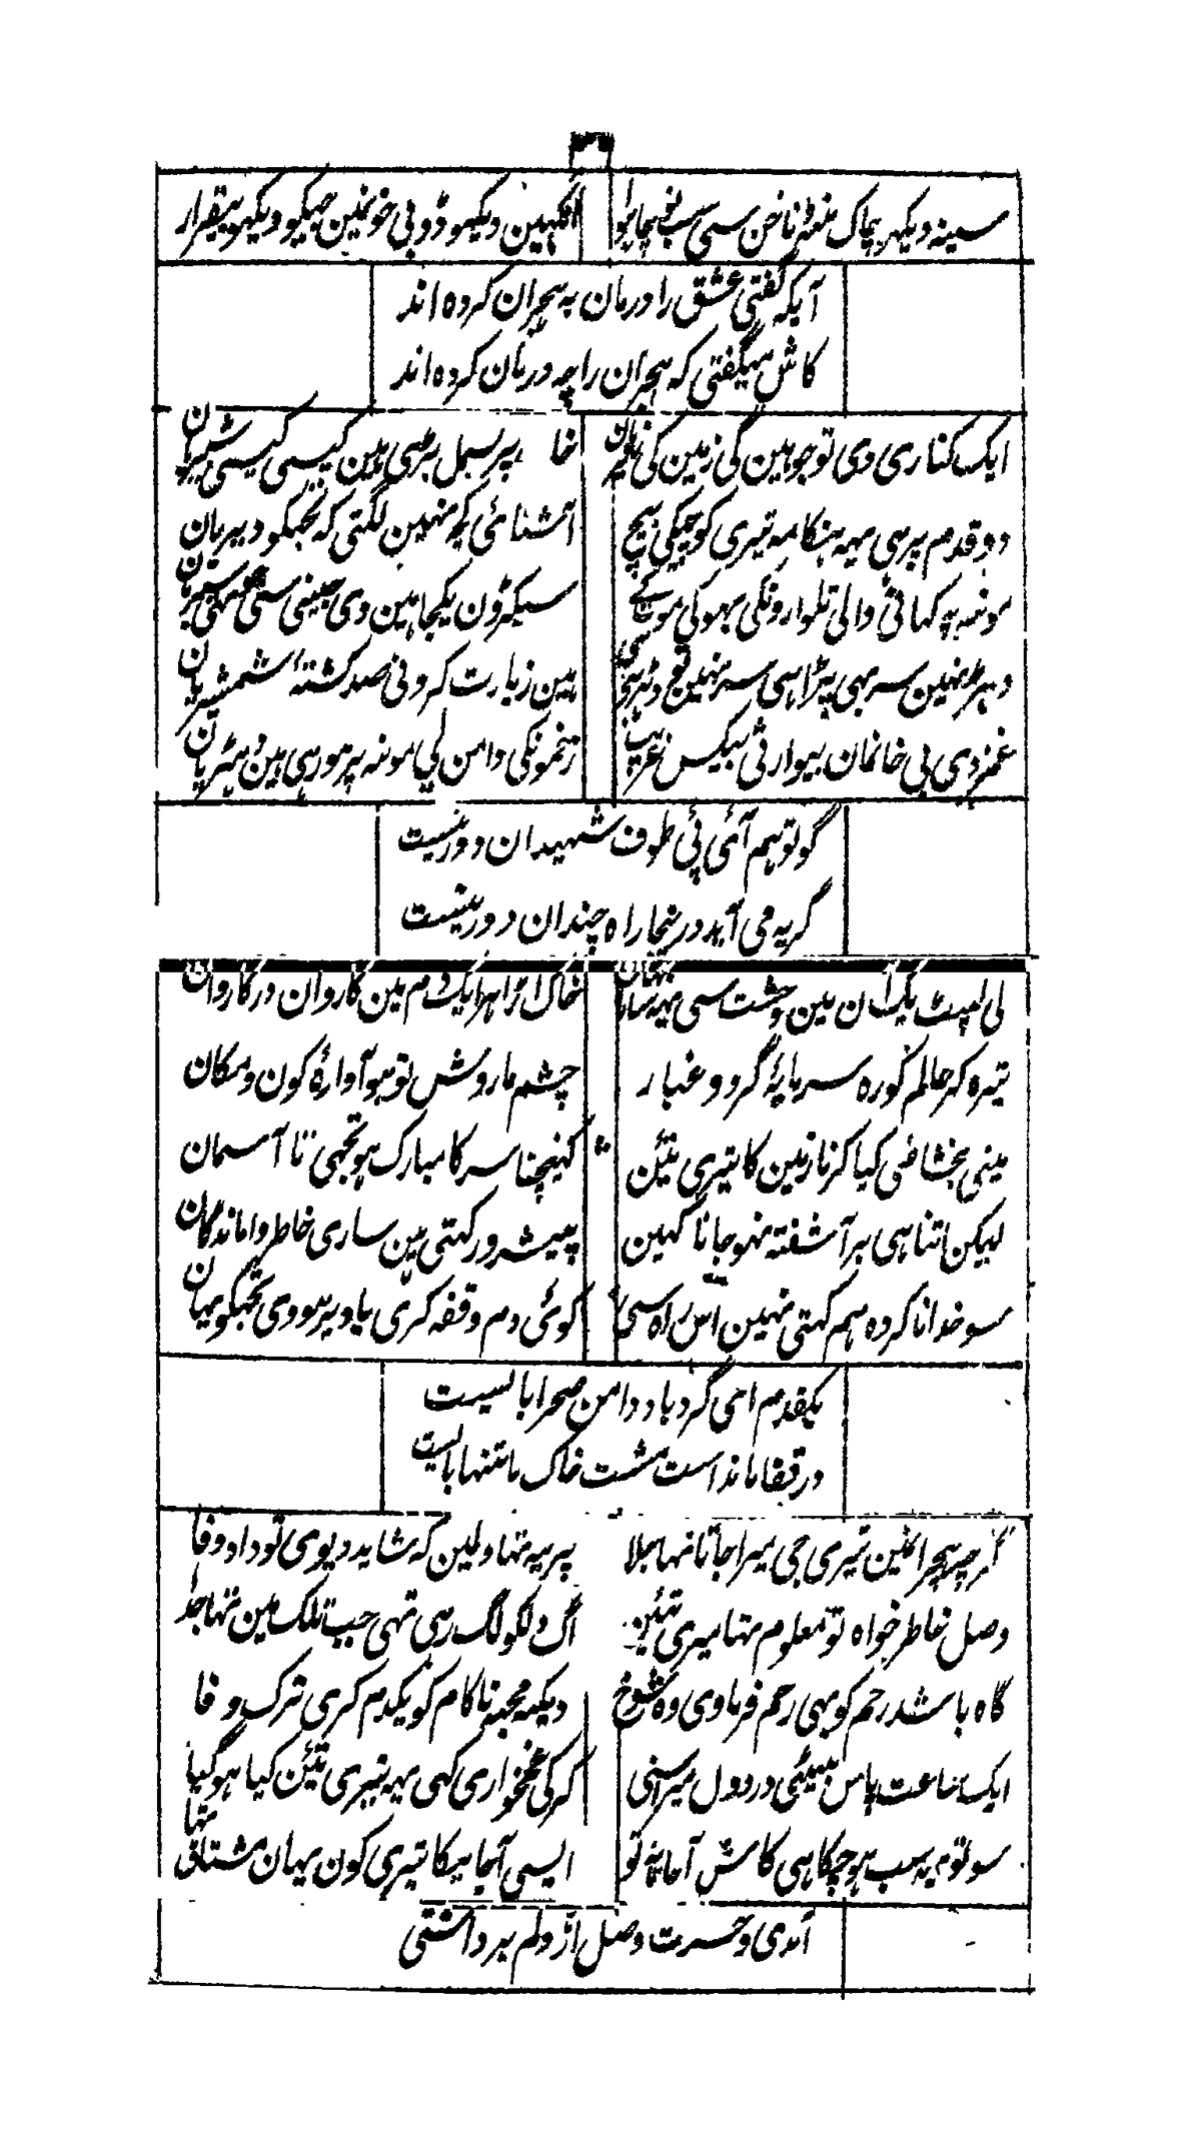 سینہ دیکھو چاک منھ ناخن سی سب نوچا ہوا
آنکہین دیکہو ڈوبی خونمین جیکو دیکہو بیقرار
آنکہ گفتی عشق را درمان بہ ہجران کردہ اند
کاش میگفتی کہ ہجران را چہ درمان کردہ اند
ایک کناری دی تو جو ہین گی زمین کی
خا پر سمل پڑہی ہین کیسی کیسی
دو قدم پر ہی یہہ ہنکامہ تیری کوچیکی بیچ
آشنائی کچہ نہین لگتی کہ تجہکو دیر یان
مونہہ پہ کہانی والی تلوارونکی بہوکی موت کے
سیکڑون یکجا ہین دی جینی ستی
دہر نہین سر ہی پڑا ہی سر نہین تو دہر
ہین زیارت کردنی صد کشتۂ شمشیر یان
غمزدی بی خانمان بیوارثی بیکس غریب
زخمونکی دامن لی مونہ پر سو رہی ہین ڈہیر یان
گو تو ہم آئی پئی طوف شہیدان دور نیست
گریہ می آید درینجا راہ چندان دور نیست
لی لپٹ یک آن مین وحشت سی یہہ
خاک اڑا ہر ایک دم مین کاروان در کاروان
تیرہ کر عالم کو رہ سرمایۂ گرد و غبار
چشم ما روشن تو ہو آوارۂ کون و مکان
مینی بخشا ضی کیا کرنا زمین کا تیری تئین
کہینچنا سر کا مبارک ہو تجہی تا آسمان
لیکن اتنا ہی بر آشفتہ نہو جانا کہین
پیشہ ور کہتی ہین ساری خاطر واماندگان
سو خدا ناکردہ ہم کہتی نہین اس راہ سی
کوئی دم وقفہ کری یا دیر ہووی تجہکو یہان
یکقدم امی گردباد دامن صحرا بایست
در قفا ماندہ است مشت خاک ما تنہا بایست
گرچہ ہجرانمین تیری جی میرا جاتا نہا بہلا
پر یہہ تہا دلمین کہ شاید دیوی تو داد وفا
وصل خاطر خواہ تو معلوم تہا میری تئین
آگ دلکو لگ رہی تہی جب تلک مین تہا جدا
گاہ باشد رحم کو بہی رحم فرماوی وہ شوخ
دیکہہ مجہہ ناکام کو یکدم کری ترک وفا
ایک ساعت پاس بیٹہی درد دل میرا سنی
کر کی غمخواری کہی یہہ تیری تئین کیا ہو گیا
سو تو یہ سب ہو چکا ہی کاش آتا نہ تو
ایسی آجانیکا تیری کون یہان مشتاق تہا
آمدی و حسرت وصل از دلم برداشتی